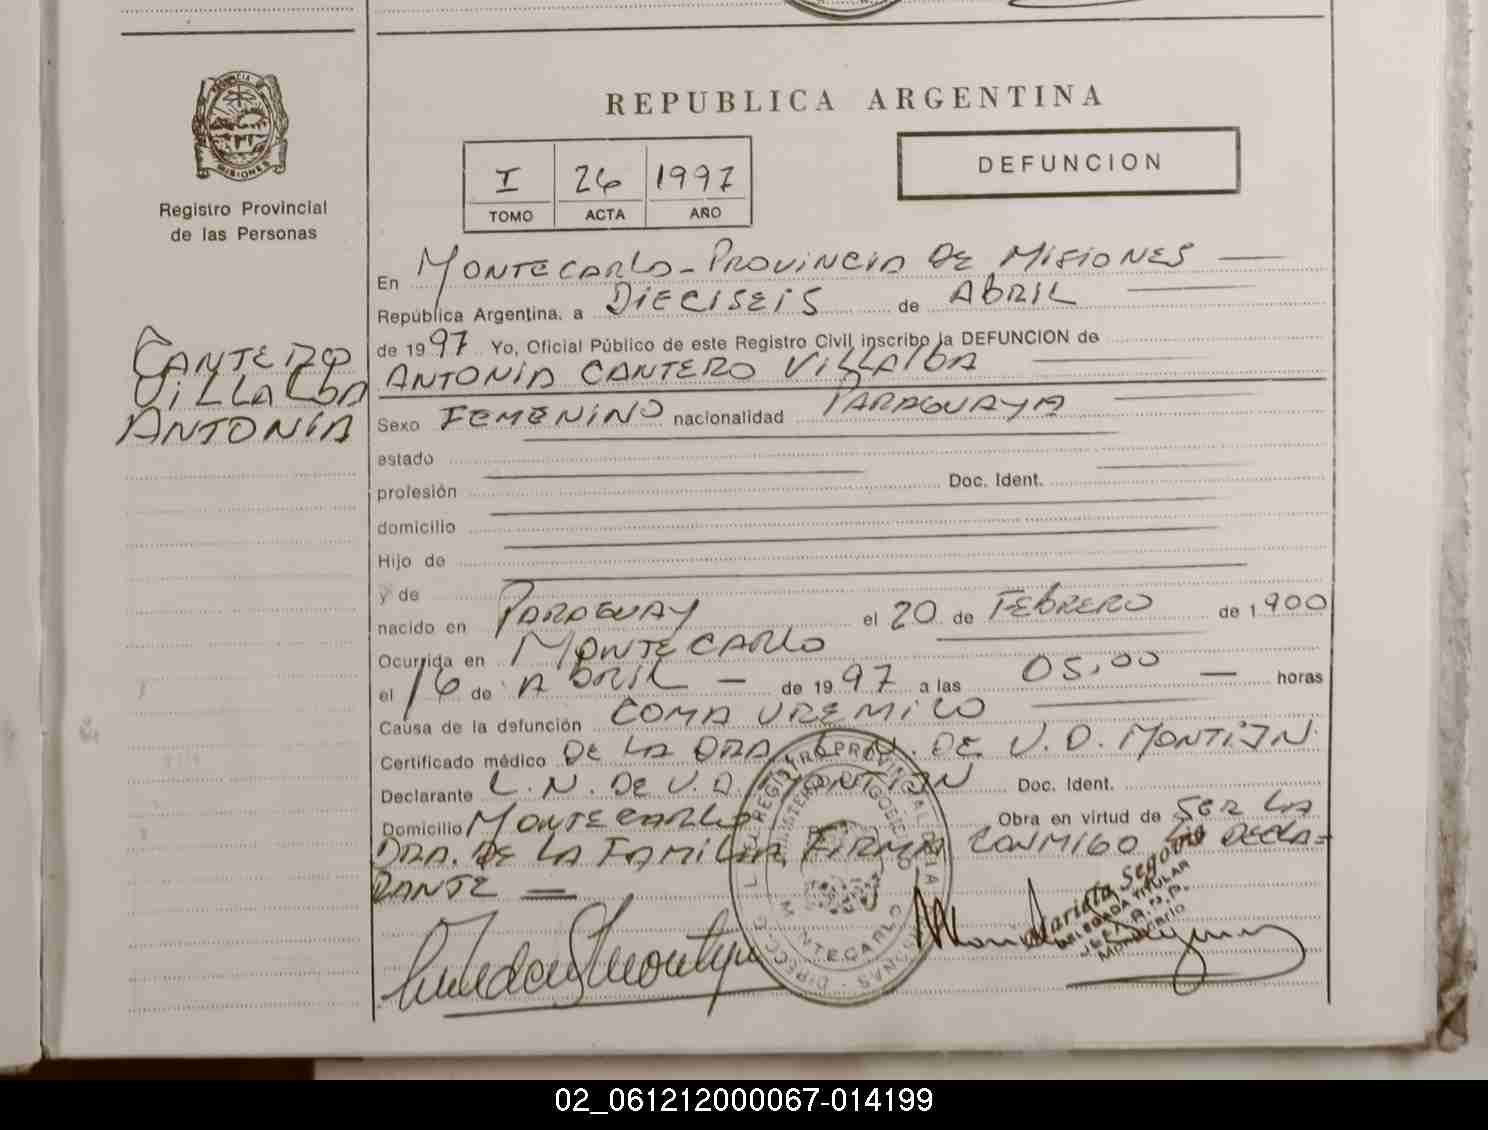 REPUBLICA ARGENTINA
DEFUNCION
I 26 1997
TOMO ACTA AÑO
PROVINCIA DE
MISIONES
Registro Provincial
de las Personas
CANTERO
VILLALBA
ANTONIA
En MONTECARLO - PROVINCIA DE MISIONES
República Argentina, a DIECISEIS de ABRIL
de 1997 Yo, Oficial Público de este Registro Civil inscribo la DEFUNCION de
ANTONIA CANTERO VILLALBA
Sexo FEMENINO nacionalidad PARAGUAYA
estado
profesión Doc. Ident.
domicilio
Hijo de
y de
nacido en PARAGUAY el 20 de FEBRERO de 1900
Ocurrida en MONTECARLO
el 16 de ABRIL - de 1997 a las 05,00 — horas
Causa de la defunción COMA UREMICO
Certificado médico DE LA DRA L.N. DE V.D. MONTIJN
Declarante L.N. DE V.D. MONTIJN Doc. Ident.
Domicilio MONTECARLO Obra en virtud de SER LA
DRA. DE LA FAMILIA, FIRMA CONMIGO LA DECLA=
RANTE =
Segovia
DELEGADA TITULAR
MONTECARLO
02_061212000067-014199